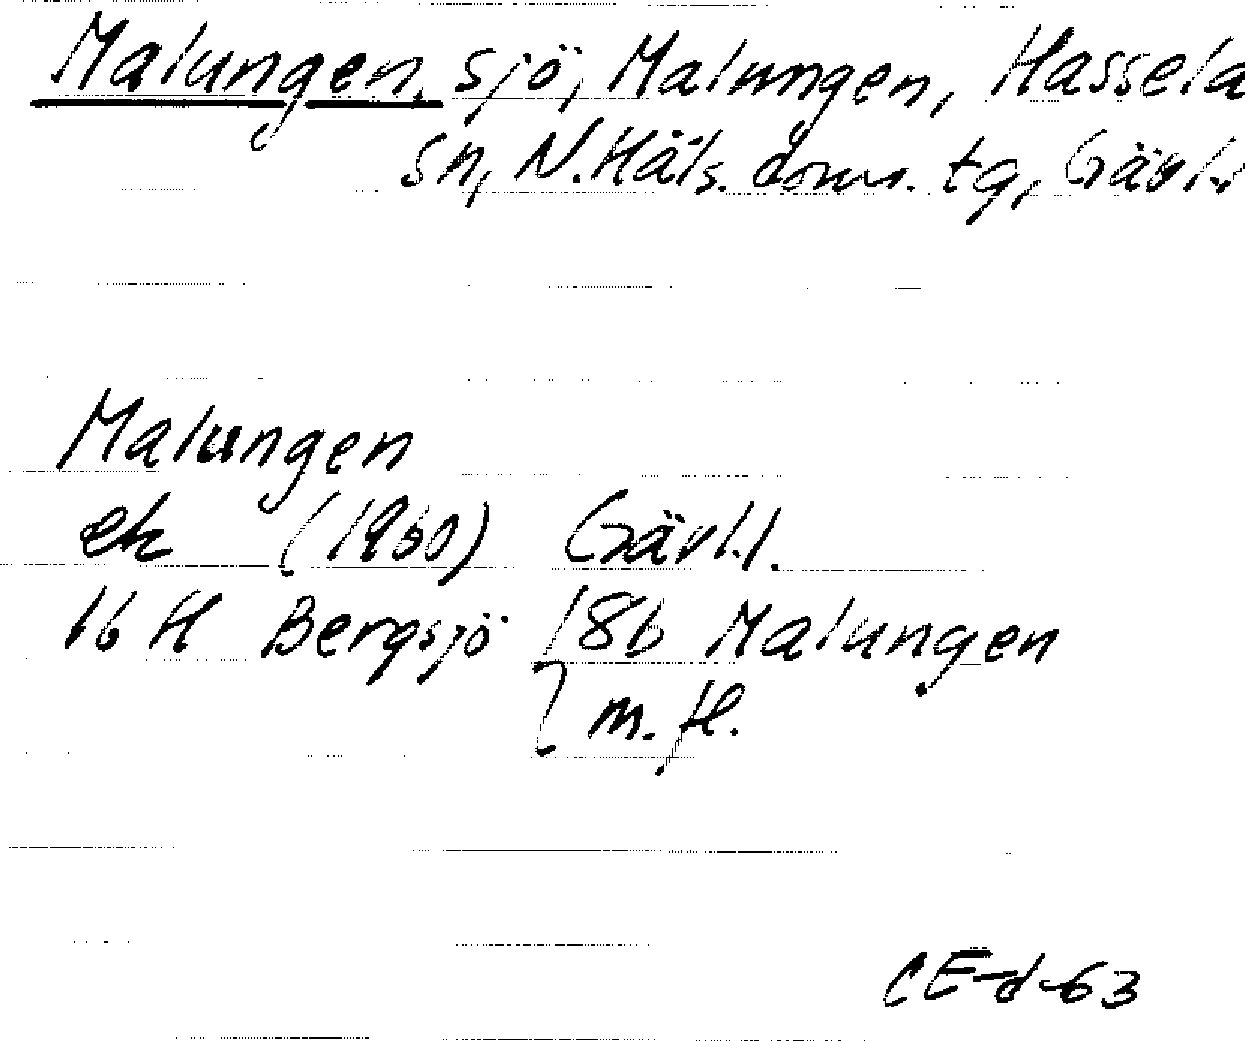 Malungen, sjö, Malungen, Hassela
sn, N. Häls. doms. tg, Gävl.
Malungen
ek (1960) Gävl.l.
16 H Bergsjö 18b Malungen
m.fl.
CE-d-63